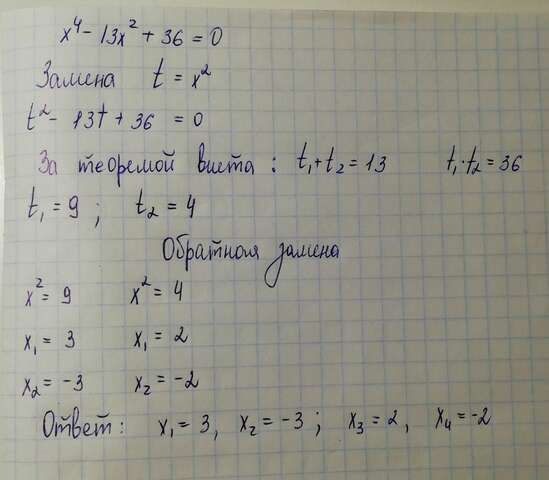 x⁴ - 13x² + 36 = 0
Замена t = x²
t² - 13t + 36 = 0
За теоремой виета : t₁ + t₂ = 13 t₁·t₂ = 36
t₁ = 9 ; t₂ = 4
Обратная замена
x² = 9 x² = 4
x₁ = 3 x₁ = 2
x₂ = -3 x₂ = -2
Ответ: x₁ = 3, x₂ = -3 ; x₃ = 2, x₄ = -2